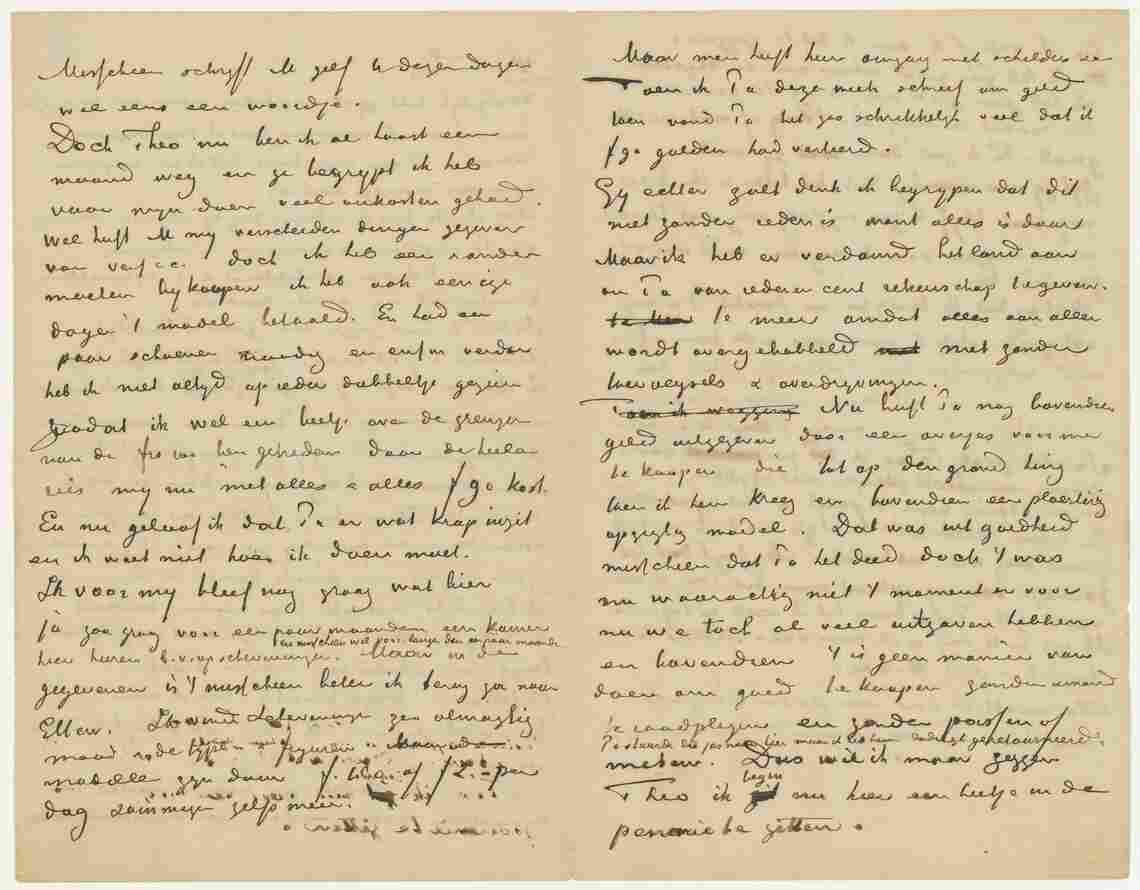 Misschien schrijft M zelf U dezer dagen
wel eens een woordje.
Doch Theo nu ben ik al haast een
maand weg en ge begrijpt ik heb
voor mijn doen veel onkosten gehad.
Wel heeft M mij verscheiden dingen gegeven
van verf &c. doch ik heb een & ander
moeten bykoopen ik heb ook eenige
dagen 't model betaald. En had een
paar schoenen noodig en enfin verder
heb ik niet altyd op ieder dubbeltje gezien
zoodat ik wel een beetje over de grenzen
van de frs 100 ben getreden daar de heele
reis my nu met alles & alles f 90 kost.
En nu geloof ik dat Pa er wat krap inzit
en ik weet niet hoe ik doen moet.
Ik voor my bleef nog graag wat hier
ja zou graag voor een paar maanden een kamer
en misschien wel voor langer dan een paar maanden
hier huren b.v. op scheveningen. Maar in de
gegevenen is 't misschien beter ik terug ga naar
Etten. Ik vind Scheveningen zoo almagtig
mooi & de types & figuren
modelle zyn duur f 1.50 of f 2.- per
dag & sommigen zelfs meer.
Maar men heeft hier omgang met schilders &c
Toen ik Pa dezer week schreef om geld
toen vond Pa het zoo schrikkelyk veel dat ik
f 90 gulden had verteerd.
Gy echter zult denk ik begrypen dat dit
niet zonder reden is want alles is duur
Maar ik heb er verdomd het land aan
om Pa van iederen cent rekenschap te geven.
te meer omdat alles aan allen
wordt overgebabbeld niet zonder
toevoegsels & overdryvingen.
Toen ik wegging Nu heeft Pa nog bovendien
geld uitgegeven door een overjas voor me
te koopen die tot op den grond hing
toen ik hem kreeg en bovendien een plaertig
opzigtig model. Dat was uit goedheid
misschien dat Pa het deed doch 't was
nu waarachtig niet 't moment er voor
nu we toch al veel uitgaven hebben
en bovendien 't is geen manier van
doen om goed te koopen zonder iemand
te raadplegen en zonder passen of
Pa stuurde die jas hier maar ik heb hem geretourneerd.
meten. Dus wil ik maar zeggen
begin
Theo ik nu hier een beetje in de
penurie te zitten.